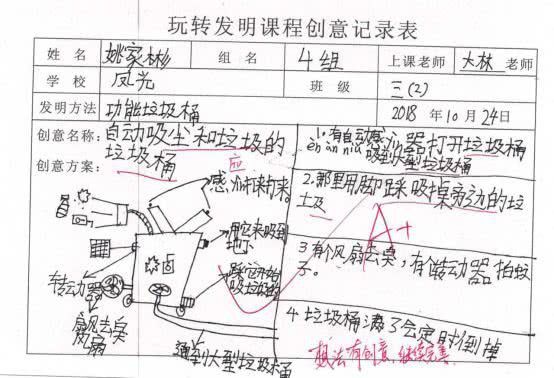 玩转发明课程创意记录表
姓 名 姚家彬 组 名 4组 上课老师 大林 老师
学 校 凤光 班 级 三(2)
发明方法 功能垃圾桶 2018 年 10 月 24 日
创意名称: 自动吸尘和垃圾的
垃圾桶
创意方案:
应
感 打来打术。
用它来吸到
地下
踩它开始
吸垃圾的
车转动器
扇风去臭
风扇
通到大型垃圾桶
1. 有自动感 器打开垃圾桶
en àn niǔ 吸到大型垃圾桶
2. 那里用脚踩吸桌旁边的垃
圾
A+
3 有个风扇去臭,有个转动器 拍蚊
子。
4. 垃圾桶满了会定时倒掉
想法有创意,继续完善